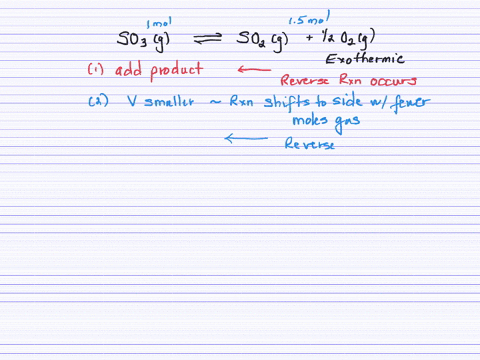 1 mol 1.5 mol
SO₃(g) ⇌ SO₂(g) + ½ O₂(g)
Exothermic
(1) add product ← Reverse Rxn occurs
(2) V smaller ~ Rxn shifts to side w/ fewer
moles gas
← Reverse